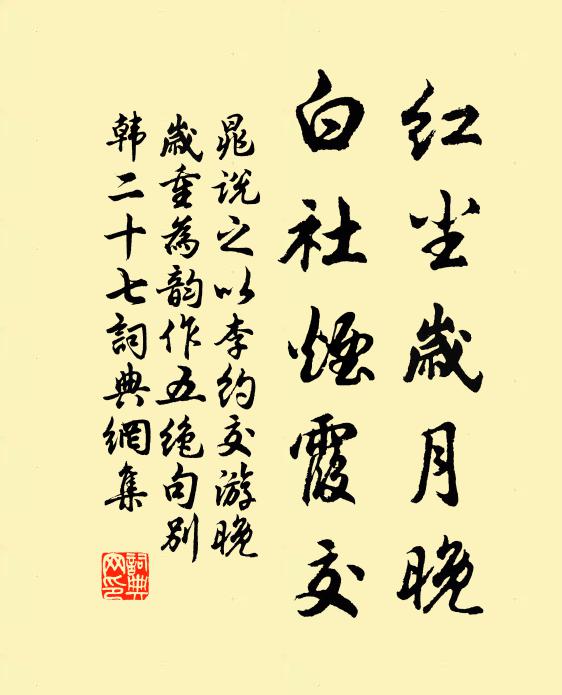 红尘岁月晚
白社烟霞交
晁说之以李约交游晚
岁重为韵作五绝句别
韩二十七词典网集
詞典
网印